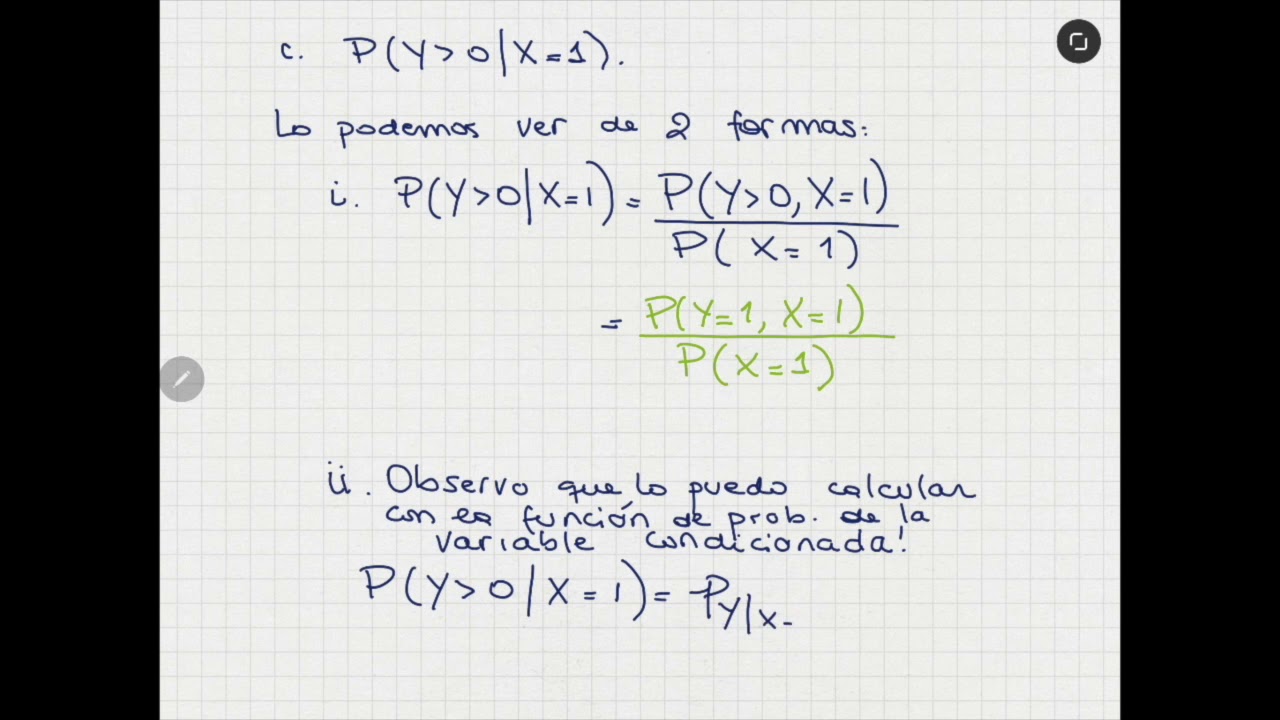 c. P(Y>0|X=1).
Lo podemos ver de 2 formas:
i. P(Y>0|X=1) = P(Y>0, X=1)
P(X=1)
= P(Y=1, X=1)
P(X=1)
ii. Observo que lo puedo calcular
con es función de prob. de la
variable condicionada!
P(Y>0|X=1) = P_Y|X-